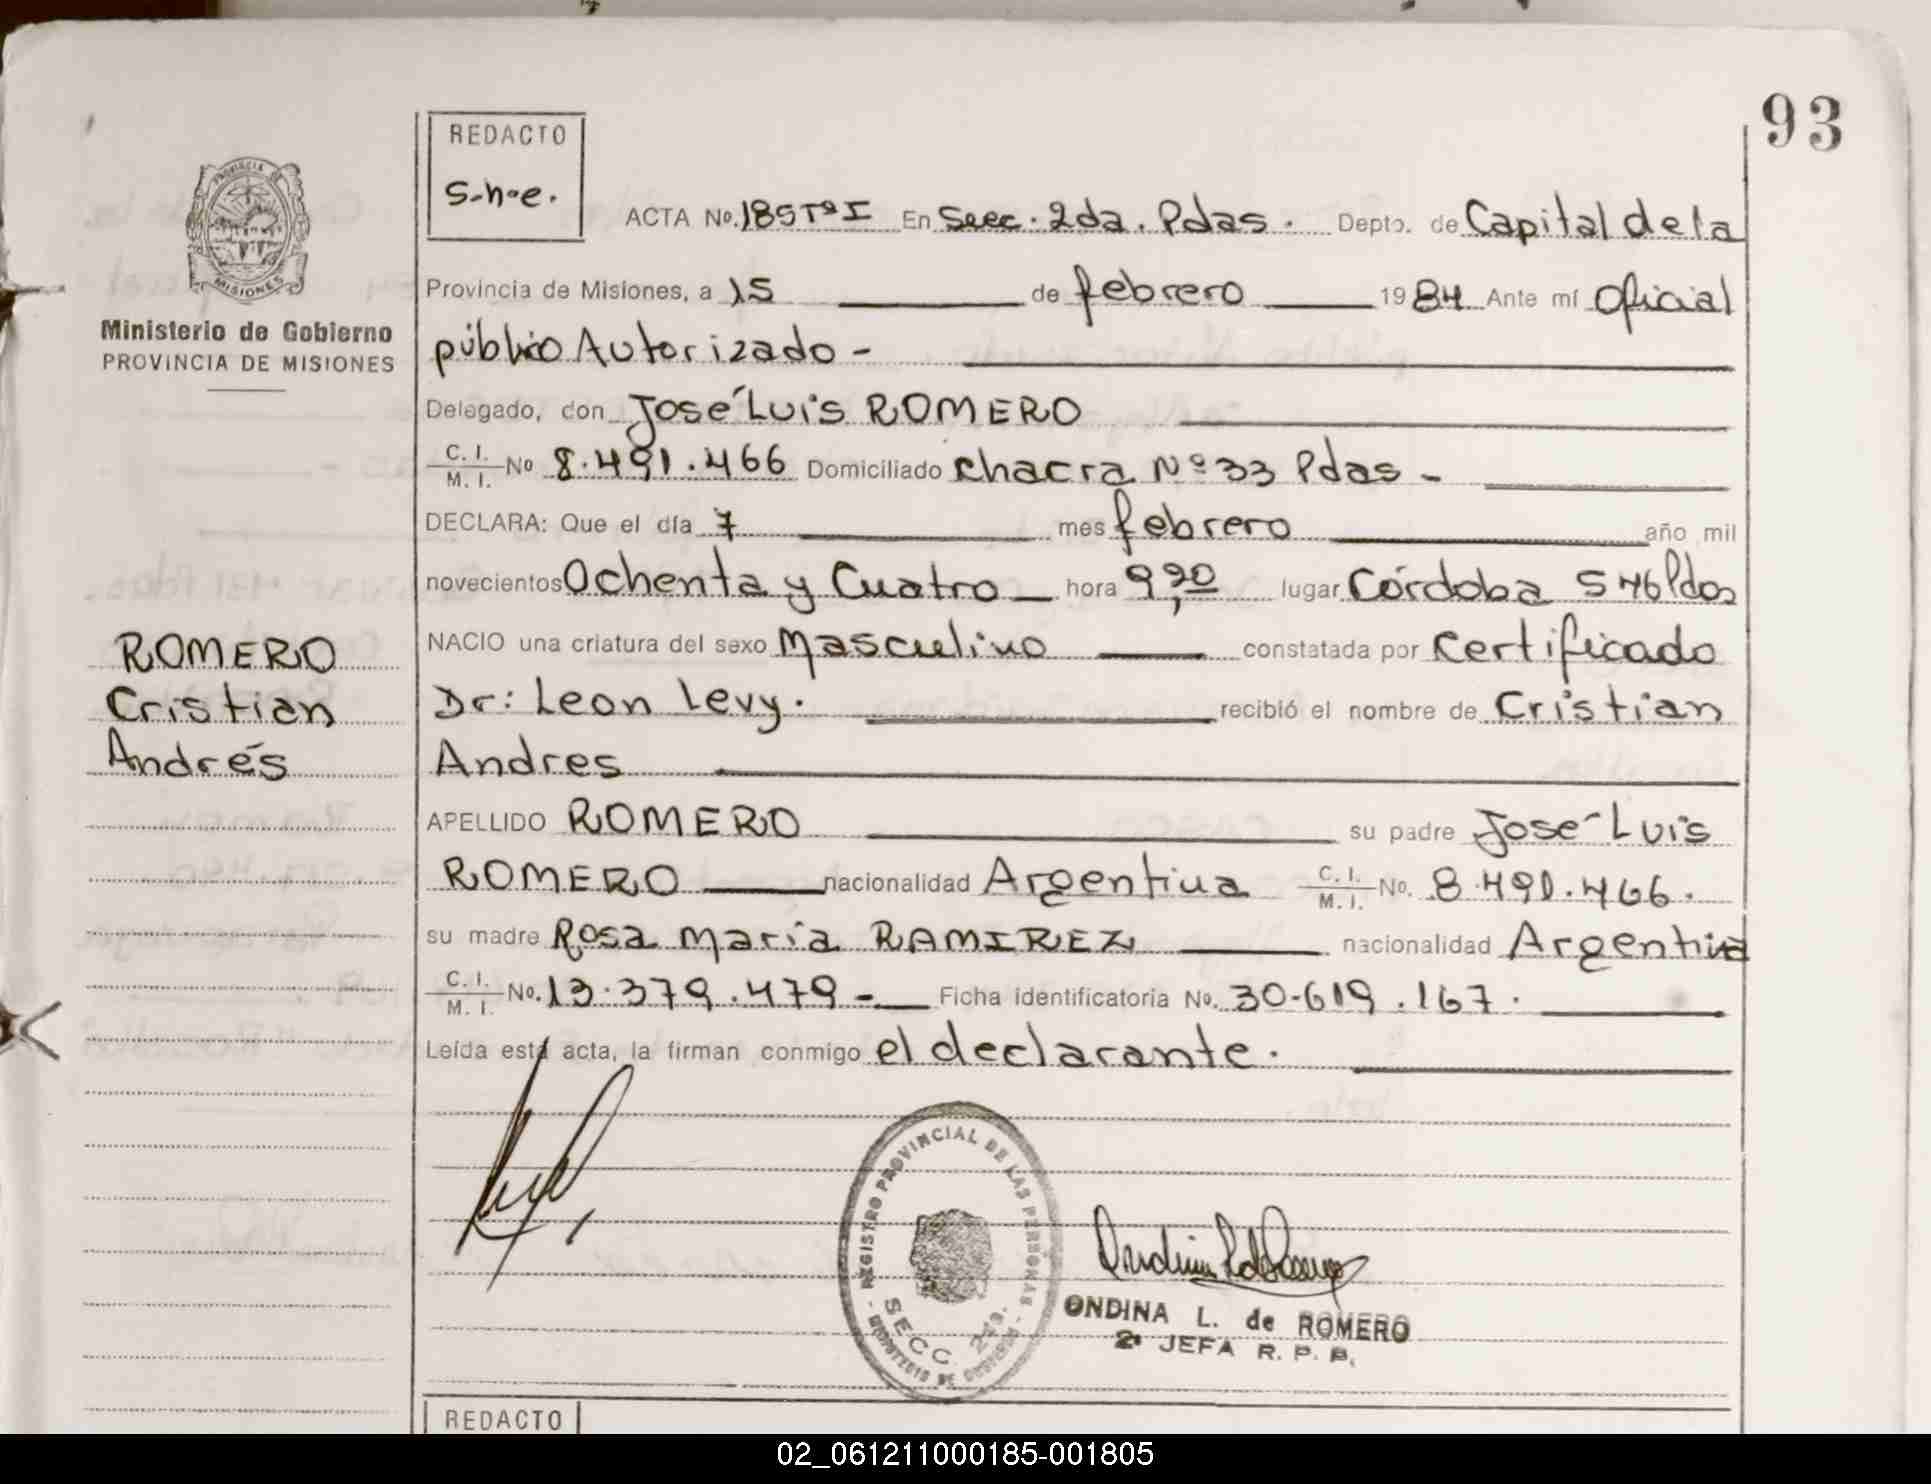 93
REDACTO
S-h-e.
PROVINCIA DE
MISIONES
Ministerio de Gobierno
PROVINCIA DE MISIONES
ACTA No. 185 Tº I En Secc. 2da. Pdas. Depto. de Capital de la
Provincia de Misiones, a 15 de febrero 1984 Ante mí Oficial
público Autorizado -
Delegado, don José Luis ROMERO
C. I. / M. I. No 8.491.466 Domiciliado chacra Nº 33 Pdas -
DECLARA: Que el día 7 mes febrero año mil
novecientos Ochenta y Cuatro hora 9,20 lugar Córdoba 546 Pdas
NACIO una criatura del sexo Masculino constatada por Certificado
Dr: Leon Levy. recibió el nombre de Cristian
Andres
ROMERO
Cristian
Andrés
APELLIDO ROMERO su padre José Luis
ROMERO nacionalidad Argentina C. I. / M. I. No. 8.491.466.
su madre Rosa María RAMIREZ nacionalidad Argentina
C. I. / M. I. No. 13.379.479 - Ficha identificatoria No. 30.619.167.
Leída está acta, la firman conmigo el declarante.
REGISTRO PROVINCIAL DE LAS PERSONAS
SECC. 2da.
MINISTERIO DE GOBIERNO
ONDINA L. de ROMERO
2ª JEFA R. P. P.
REDACTO
02_061211000185-001805